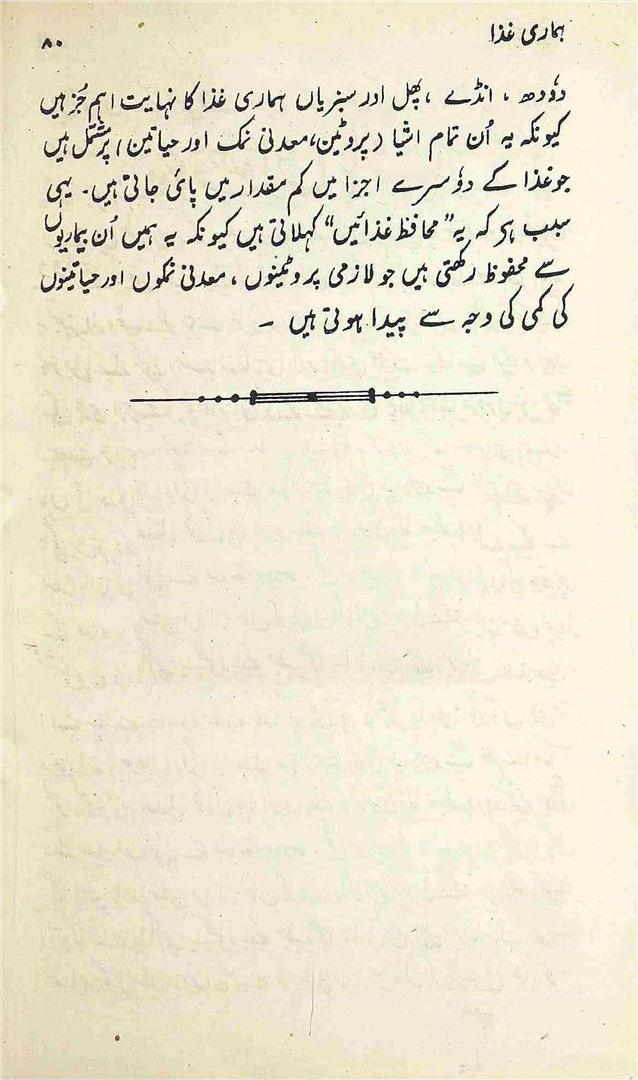 ہماری غذا ۸۰
دوٗدھ ، انڈے ، پھل اور سبزیاں ہماری غذا کا نہایت اہم جُز ہیں
کیونکہ یہ اُن تمام اشیا (پروٹین، معدنی نمک اور حیاتین) پر مشتمل ہیں
جو غذا کے دوٗسرے اجزا میں کم مقدار میں پائی جاتی ہیں۔ یہی
سبب ہے کہ یہ "محافظ غذائیں" کہلاتی ہیں کیونکہ یہ ہمیں اُن بیماریوں
سے محفوظ رکھتی ہیں جو لازمی پروٹینوں ، معدنی نمکوں اور حیاتینوں
کی کمی کی وجہ سے پیدا ہوتی ہیں ۔